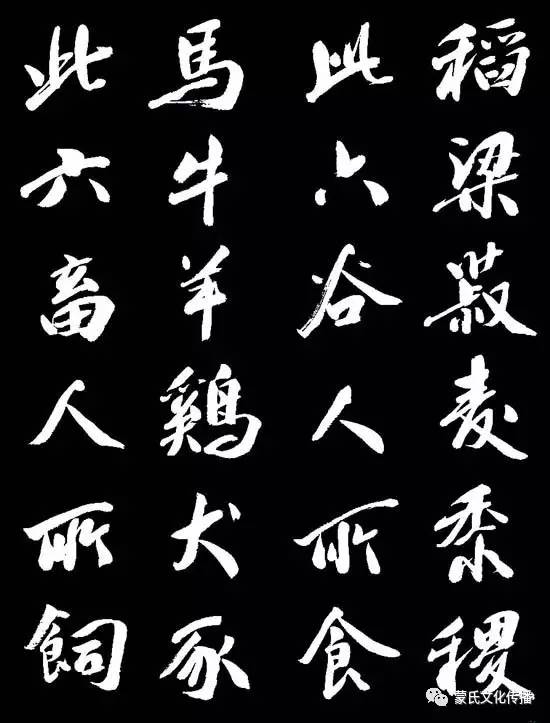 稻梁菽麦黍稷
此六谷人所食
馬牛羊鷄犬豕
此六畜人所飼
蒙氏文化传播